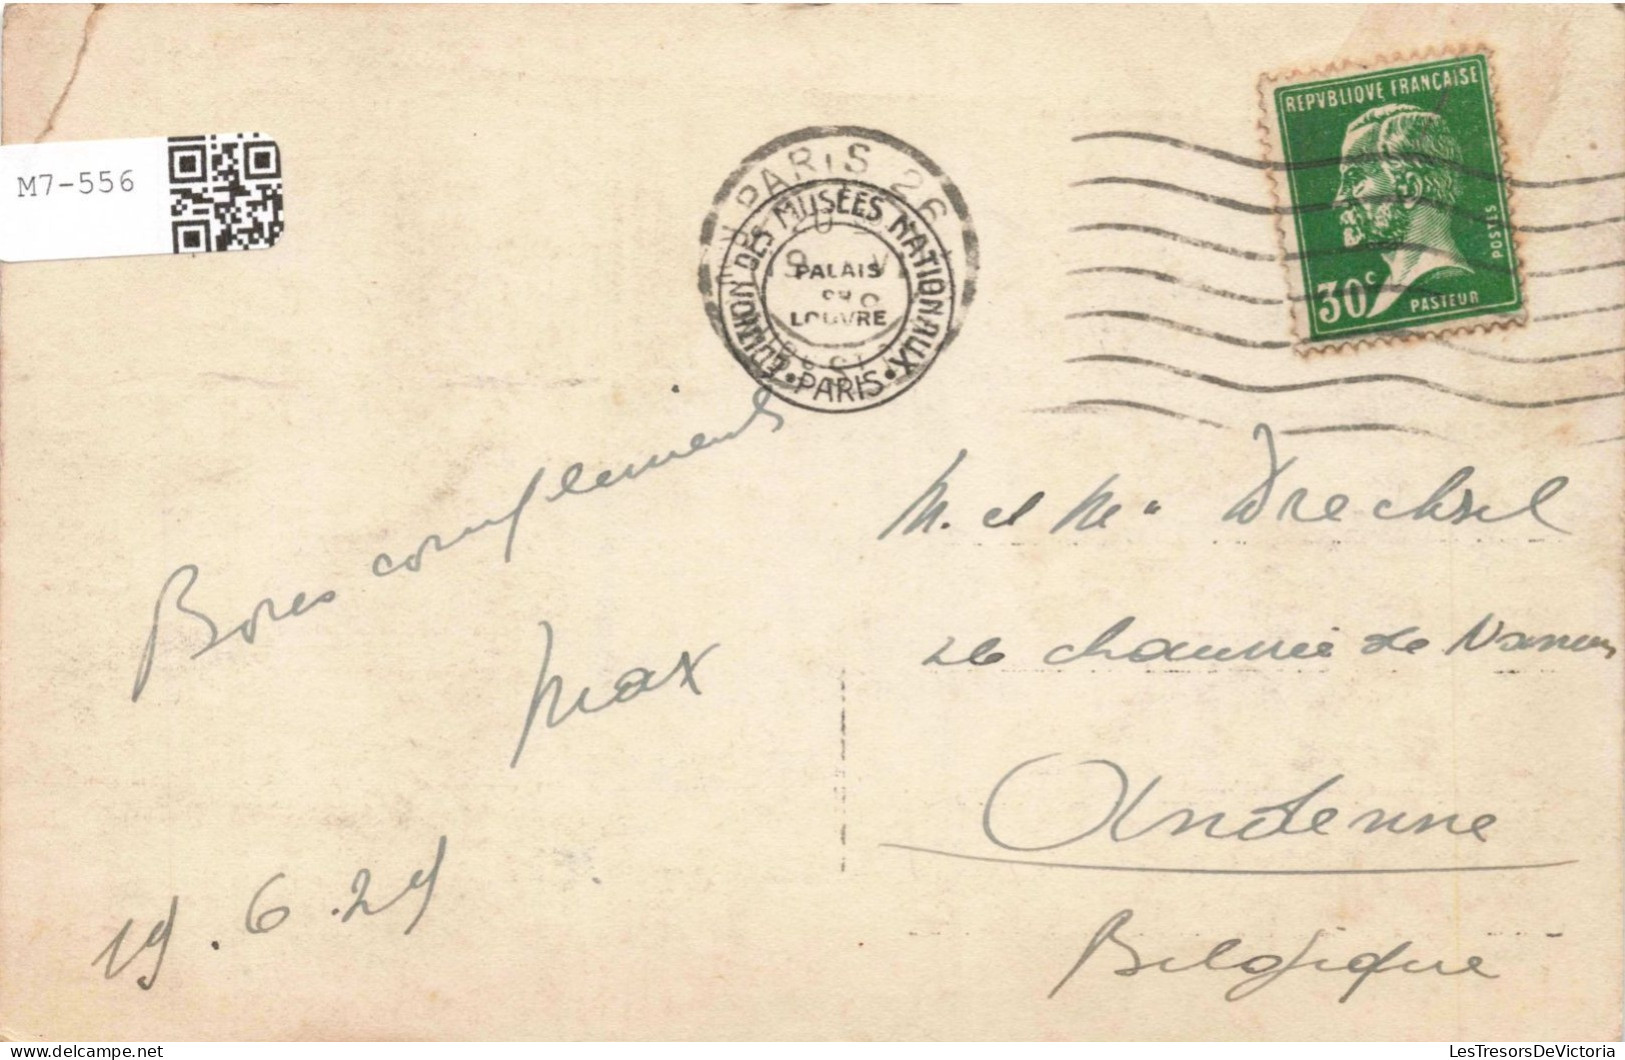 M7-556
REPVBLIQVE FRANÇAISE
POSTES
30c
PASTEUR
PARIS 26
RÉUNION DES MUSÉES NATIONAUX
PALAIS
DU
LOUVRE
PARIS
Bons compliments
Max
19.6.24
M. et Me Drechsel
26 chaussée de Namur
Andenne
Belgique
LesTresorsDeVictoria
delcampe.net